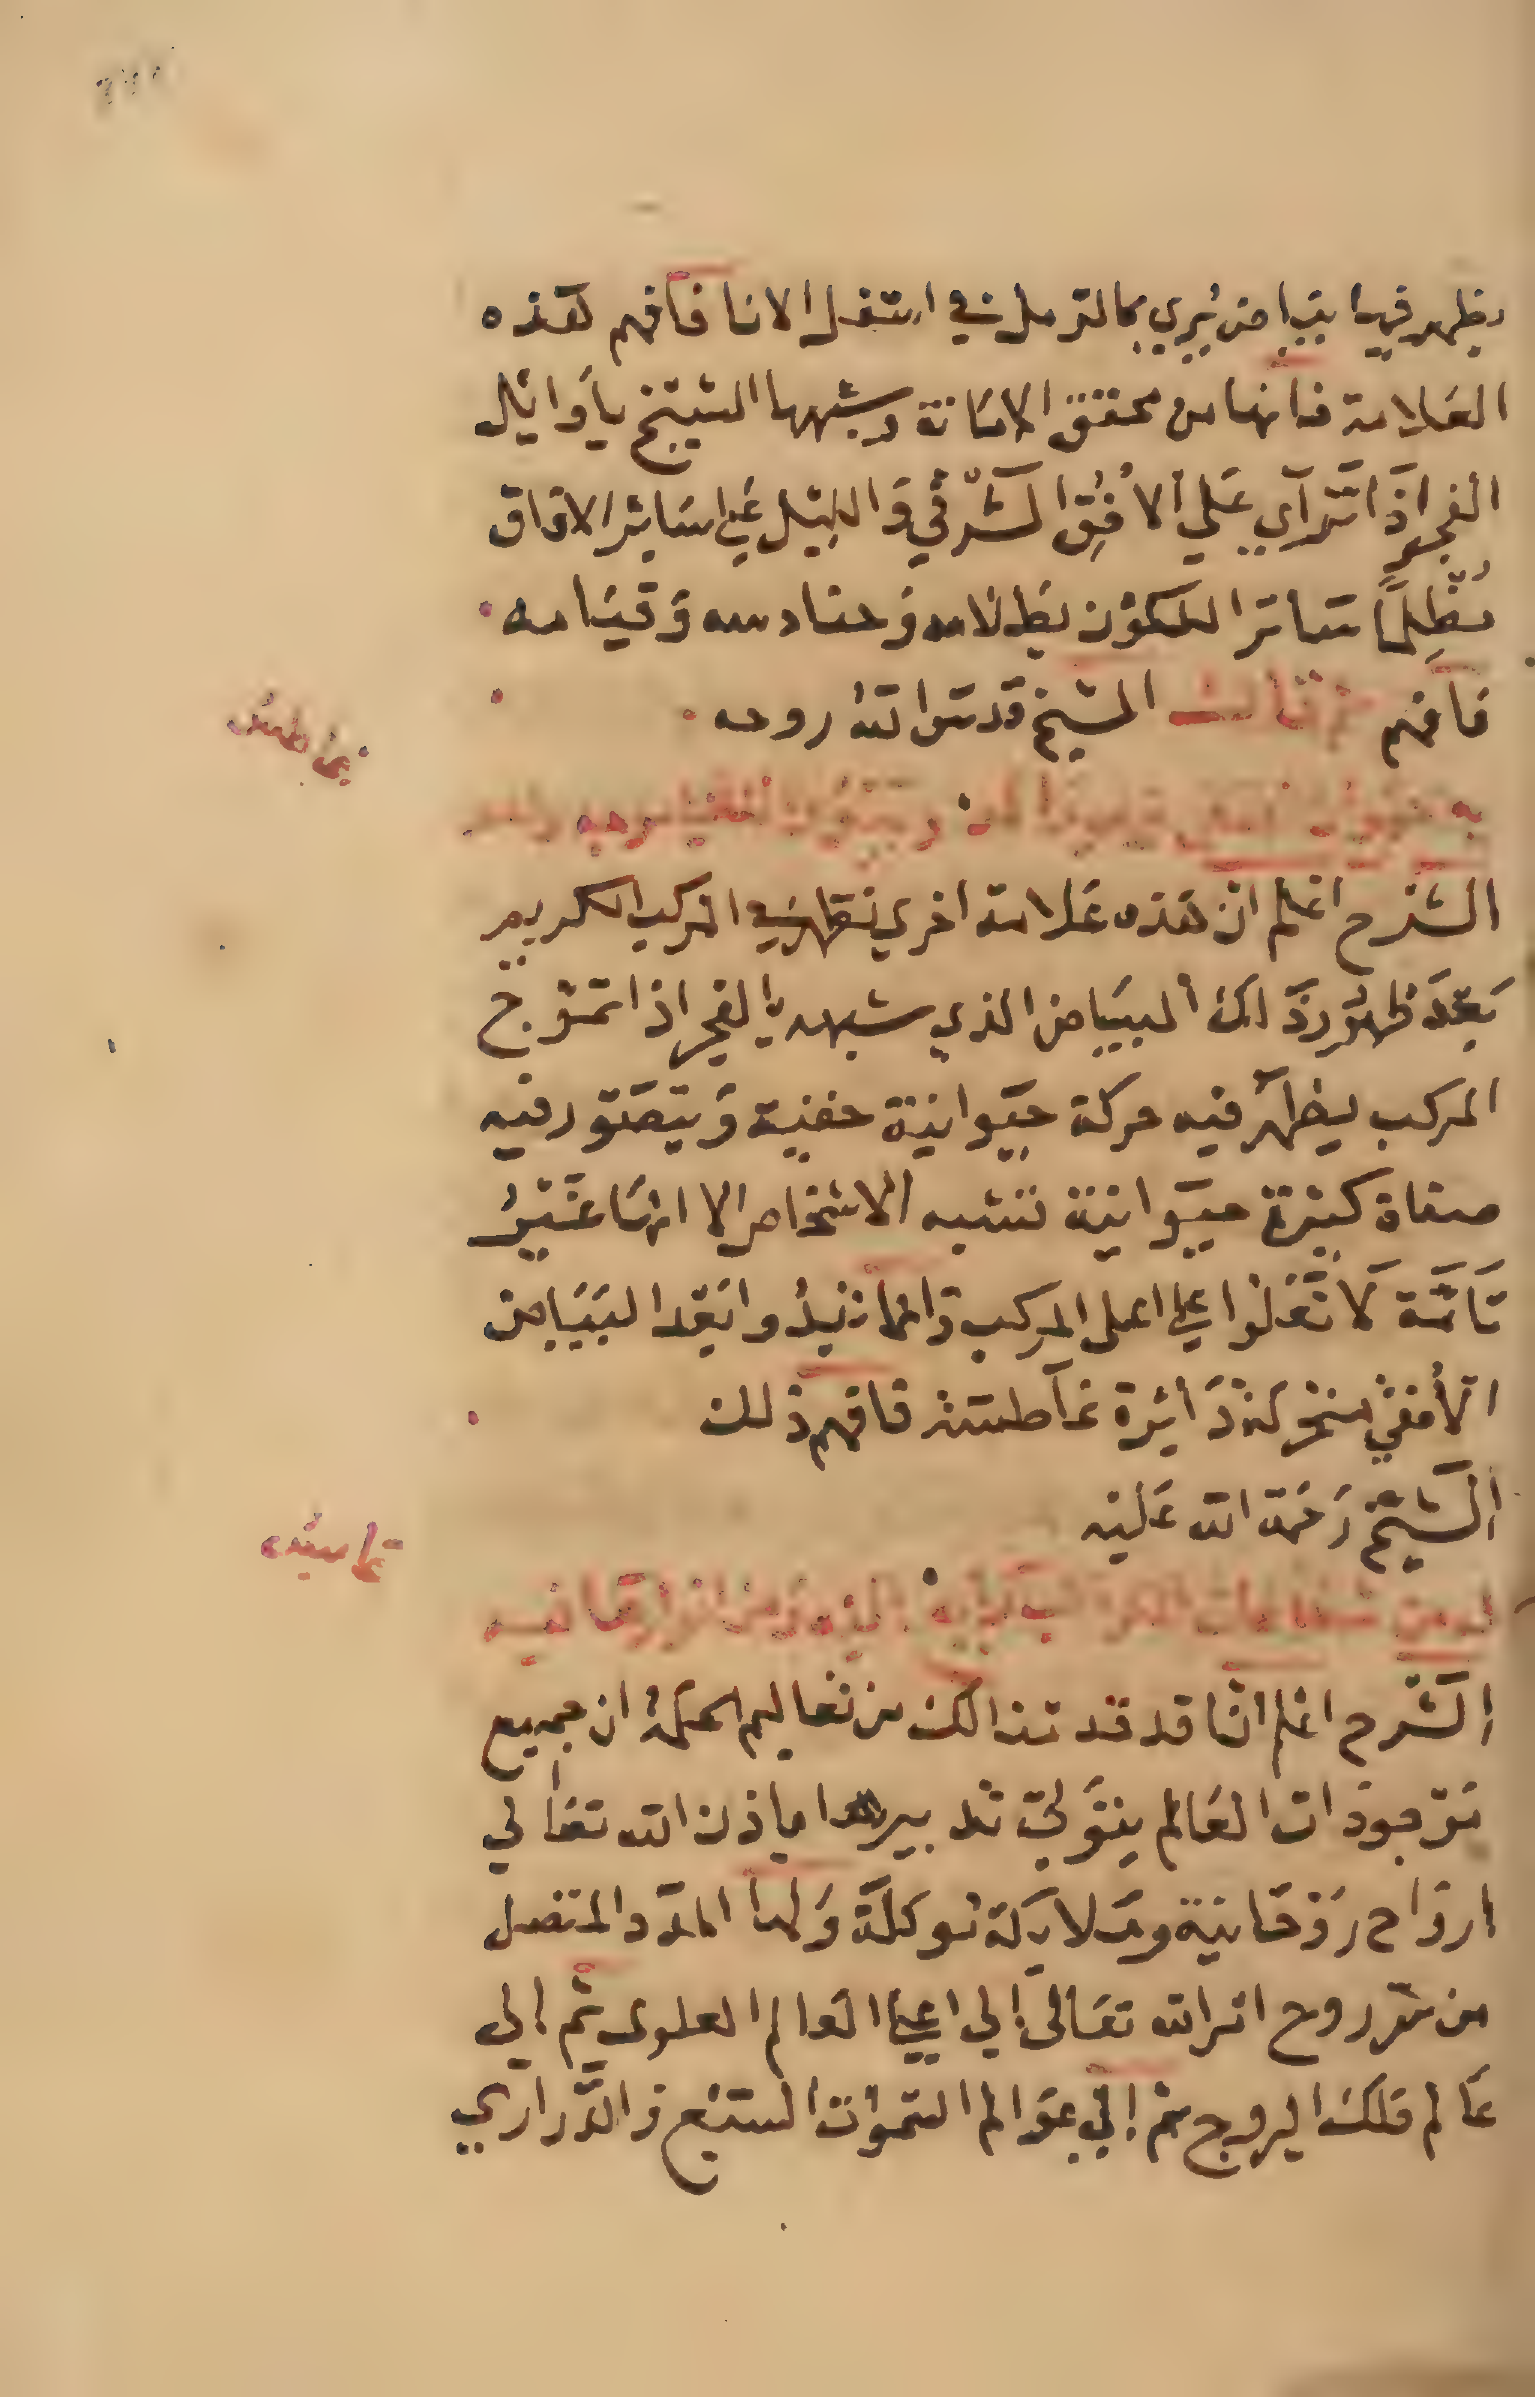 يظهر فيها بياض يري كالرمل في اسفل الانا فافهم هذه
العلامة فانها من محقق الامانة وشبهها الشيخ باوايل
الفجر اذا تراآي علي الافق الشرقي والليل علي سائر الافاق
مظلمًا ساترا للكون بظلامه وحنادسه وقيامه
فافهم ثم قال الشيخ قدس الله روحه
غاطس
الشرح اعلم ان هذه علامة اخري تظهر في المركب الكريم
بعد ظهور ذالك البياض الذي شبهه بالفجر اذا تموج
المركب يظهر فيه حركة حيوانية خفية ويتصور فيه
صفاة كثيرة حيوانية تشبه الاشخاص الا انها غير
تامة لا تعلوا علي اعلي المركب وانما تبدوا بعد البياض
الافقي متحركة دائرة غاطسة فافهم ذلك
الشيخ رحمة الله عليه
تماسيد
الشرح اعلم انا قد قدمنا لك من تعاليم الحكمة ان جميع
موجودات العالم يتولي تدبيرها باذن الله تعالي
ارواح روحانية وملايكة موكلة ولها المدد المتصل
من سر روح امر الله تعالى الي اعلي العالم العلوي ثم الي
عالم فلك البروج ثم الي عوالم السموات السبع والدراري